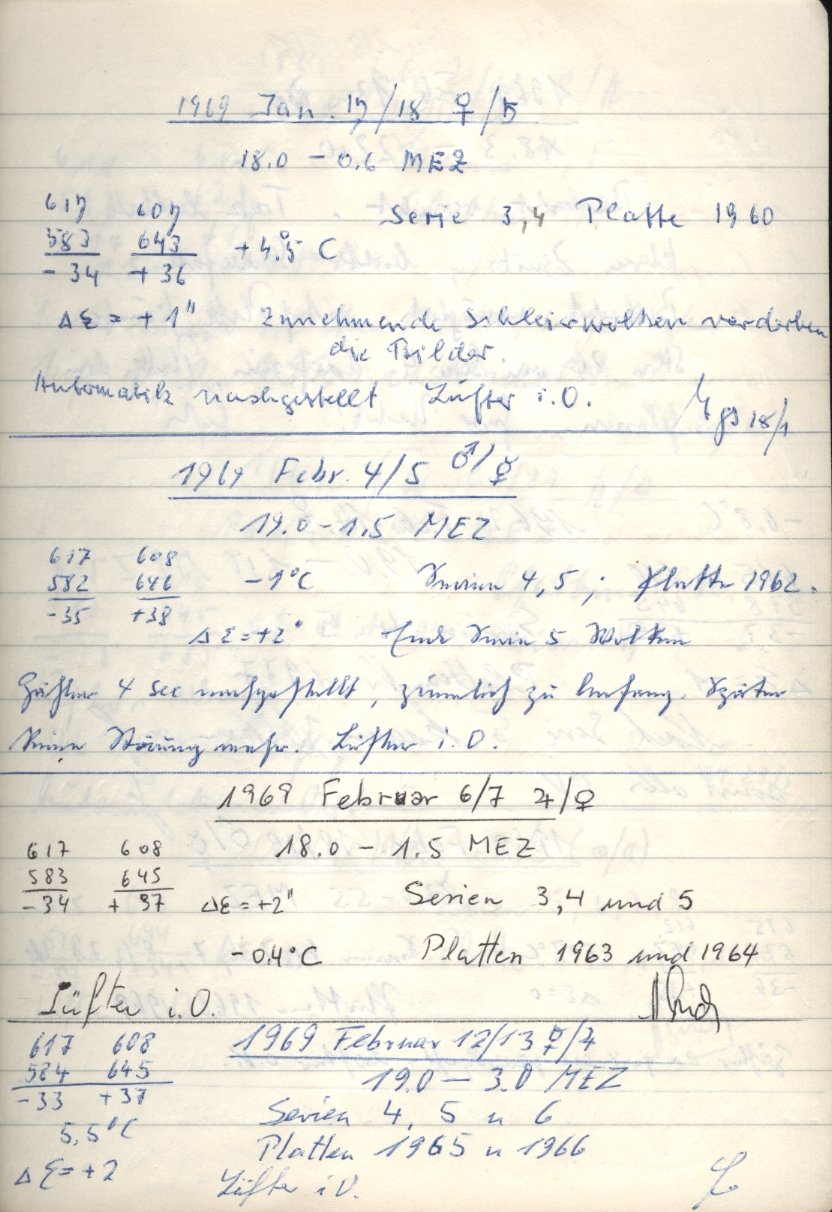 1969 Jan. 17/18 ♀/♄
18.0 – 0.6 MEZ
617 607 Serie 3,4 Platte 1960
583 643 +4.5° C
-34 +36
Δε = +1" Zunehmende Schleierwolken verdarben
die Bilder.
Automatik nachgestellt Lüfter i.O. 18/1
1969 Febr. 4/5 ♂/☿
19.0 – 1.5 MEZ
617 608
582 646 -1°C Serien 4,5; Platte 1962.
-35 +38
Δε = +2" Ende Serie 5 Wolken
Zähler 4 sec nachgestellt, ziemlich zu Anfang. Später
keine Störung mehr. Lüfter i.O.
1969 Februar 6/7 ♃/♀
617 608 18.0 – 1.5 MEZ
583 645
-34 +37 Δε = +2" Serien 3,4 und 5
-0.4°C Platten 1963 und 1964
Lüfter i.O.
617 608 1969 Februar 12/13 ☿/♃
584 645 19.0 – 3.0 MEZ
-33 +37
5,5°C Serien 4, 5 u 6
Platten 1965 u 1966
Δε = +2
Lüfter i.O.